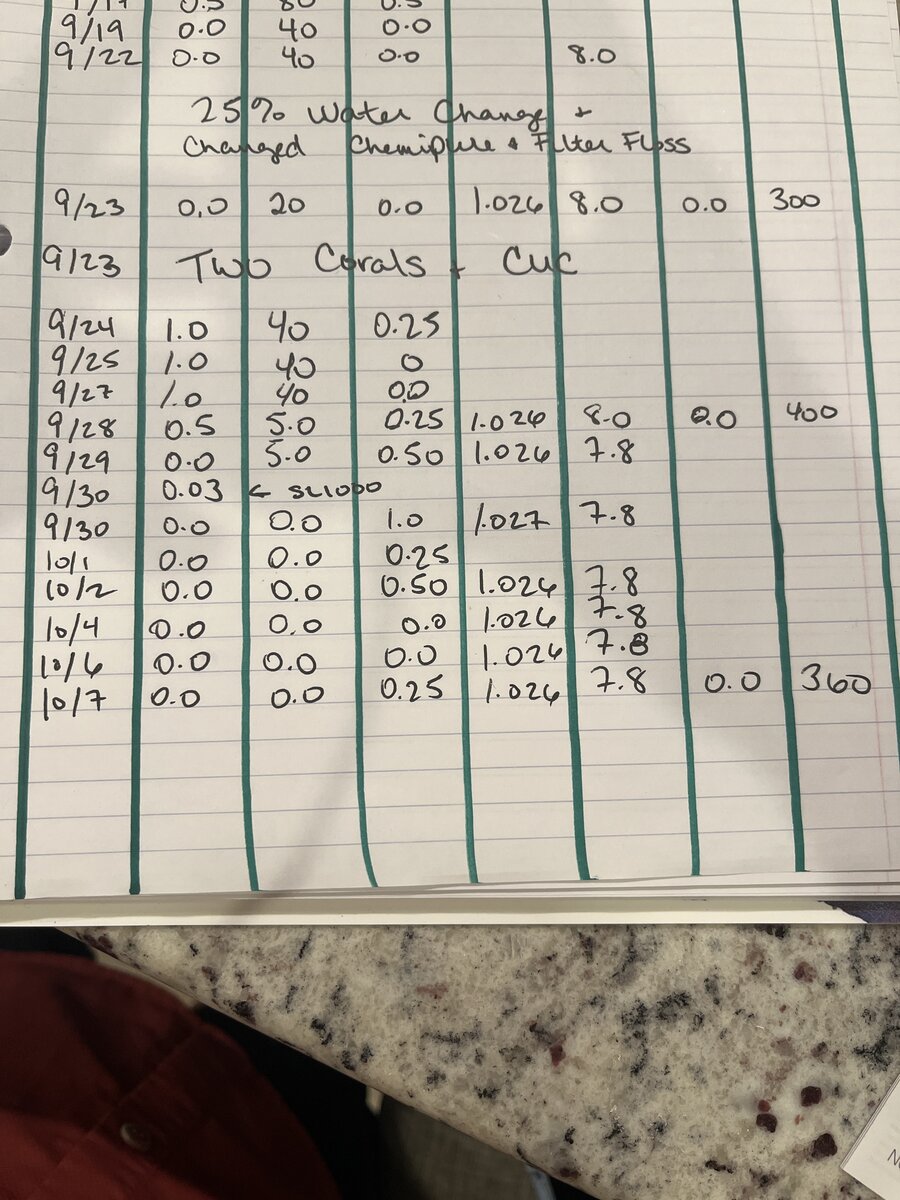 9/19 0.0 40 0.0
9/22 0.0 40 0.0 8.0
25% Water Change +
Changed Chemipure & Filter Floss
9/23 0.0 20 0.0 1.026 8.0 0.0 300
9/23 Two Corals + CUC
9/24 1.0 40 0.25
9/25 1.0 40 0
9/27 1.0 40 0.0
9/28 0.5 5.0 0.25 1.026 8.0 0.0 400
9/29 0.0 5.0 0.50 1.026 7.8
9/30 0.03 ← SL1000
9/30 0.0 0.0 1.0 1.027 7.8
10/1 0.0 0.0 0.25
10/2 0.0 0.0 0.50 1.026 7.8
10/4 0.0 0.0 0.0 1.026 7.8
10/6 0.0 0.0 0.0 1.026 7.8
10/7 0.0 0.0 0.25 1.026 7.8 0.0 360